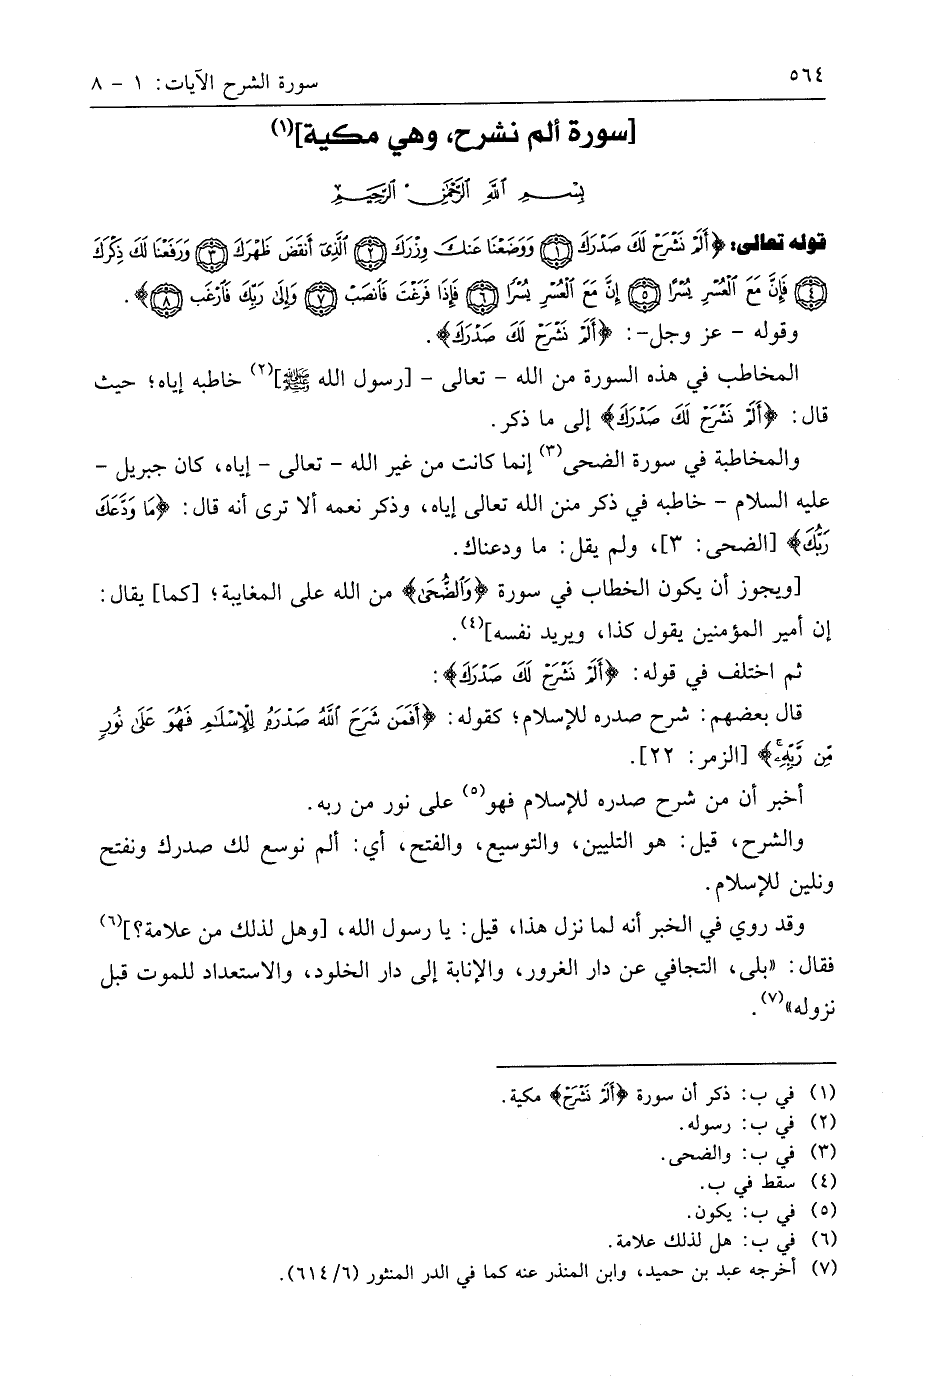 ٥٦٤
سورة الشرح الآيات: ١ - ٨
[سورة ألم نشرح، وهي مكية](١)
بِسْمِ اللَّهِ الرَّحْمَٰنِ الرَّحِيمِ
قوله تعالى: ﴿أَلَمْ نَشْرَحْ لَكَ صَدْرَكَ ۝١ وَوَضَعْنَا عَنكَ وِزْرَكَ ۝٢ ٱلَّذِىٓ أَنقَضَ ظَهْرَكَ ۝٣ وَرَفَعْنَا لَكَ ذِكْرَكَ
۝٤ فَإِنَّ مَعَ ٱلْعُسْرِ يُسْرًا ۝٥ إِنَّ مَعَ ٱلْعُسْرِ يُسْرًا ۝٦ فَإِذَا فَرَغْتَ فَٱنصَبْ ۝٧ وَإِلَىٰ رَبِّكَ فَٱرْغَب ۝٨﴾.
وقوله - عز وجل-: ﴿أَلَمْ نَشْرَحْ لَكَ صَدْرَكَ﴾.
المخاطب في هذه السورة من الله - تعالى - [رسول الله ﷺ](٢) خاطبه إياه؛ حيث
قال: ﴿أَلَمْ نَشْرَحْ لَكَ صَدْرَكَ﴾ إلى ما ذكر.
والمخاطبة في سورة الضحى(٣) إنما كانت من غير الله - تعالى - إياه، كان جبريل -
عليه السلام - خاطبه في ذكر منن الله تعالى إياه، وذكر نعمه ألا ترى أنه قال: ﴿مَا وَدَّعَكَ
رَبُّكَ﴾ [الضحى: ٣]، ولم يقل: ما ودعناك.
[ويجوز أن يكون الخطاب في سورة ﴿وَٱلضُّحَىٰ﴾ من الله على المغايبة؛ [كما] يقال:
إن أمير المؤمنين يقول كذا، ويريد نفسه](٤).
ثم اختلف في قوله: ﴿أَلَمْ نَشْرَحْ لَكَ صَدْرَكَ﴾:
قال بعضهم: شرح صدره للإسلام؛ كقوله: ﴿أَفَمَن شَرَحَ ٱللَّهُ صَدْرَهُۥ لِلْإِسْلَٰمِ فَهُوَ عَلَىٰ نُورٍ
مِّن رَّبِّهِۦۚ﴾ [الزمر: ٢٢].
أخبر أن من شرح صدره للإسلام فهو(٥) على نور من ربه.
والشرح، قيل: هو التليين، والتوسيع، والفتح، أي: ألم نوسع لك صدرك ونفتح
ونلين للإسلام.
وقد روي في الخبر أنه لما نزل هذا، قيل: يا رسول الله، [وهل لذلك من علامة؟](٦)
فقال: «بلى، التجافي عن دار الغرور، والإنابة إلى دار الخلود، والاستعداد للموت قبل
نزوله»(٧).
(١) في ب: ذكر أن سورة ﴿أَلَمْ نَشْرَحْ﴾ مكية.
(٢) في ب: رسوله.
(٣) في ب: والضحى.
(٤) سقط في ب.
(٥) في ب: يكون.
(٦) في ب: هل لذلك علامة.
(٧) أخرجه عبد بن حميد، وابن المنذر عنه كما في الدر المنثور (٦/ ٦١٤).